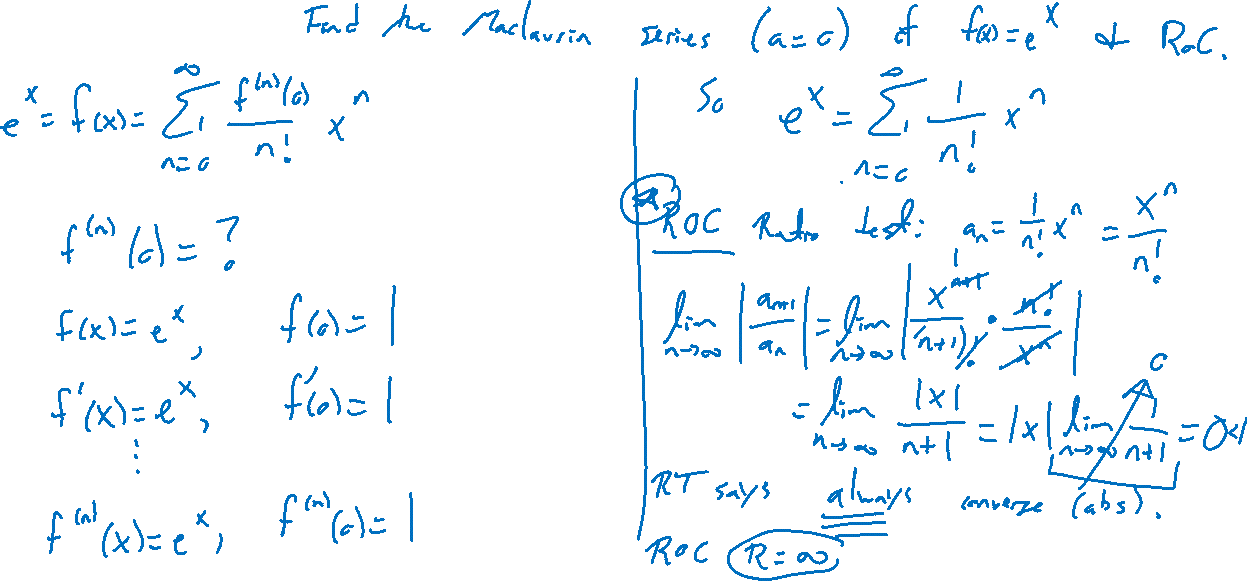 Find the Maclaurin series (a=0) of f(x)=e^x & RoC.
e^x = f(x) = ∑_{n=0}^{∞} f^{(n)}(0)/n! x^n
f^{(n)}(0) = ?
f(x) = e^x, f(0) = 1
f'(x) = e^x, f'(0) = 1
⋮
f^{(n)}(x) = e^x, f^{(n)}(0) = 1
So e^x = ∑_{n=0}^{∞} 1/n! x^n
ROC Ratio test: a_n = 1/n! x^n = x^n/n!
lim_{n→∞} |a_{n+1}/a_n| = lim_{n→∞} |x^{n+1}/(n+1)! · n!/x^n|
= lim_{n→∞} |x|/(n+1) = |x| lim_{n→∞} 1/(n+1) = 0<1
0
RT says always converge (abs).
ROC R=∞